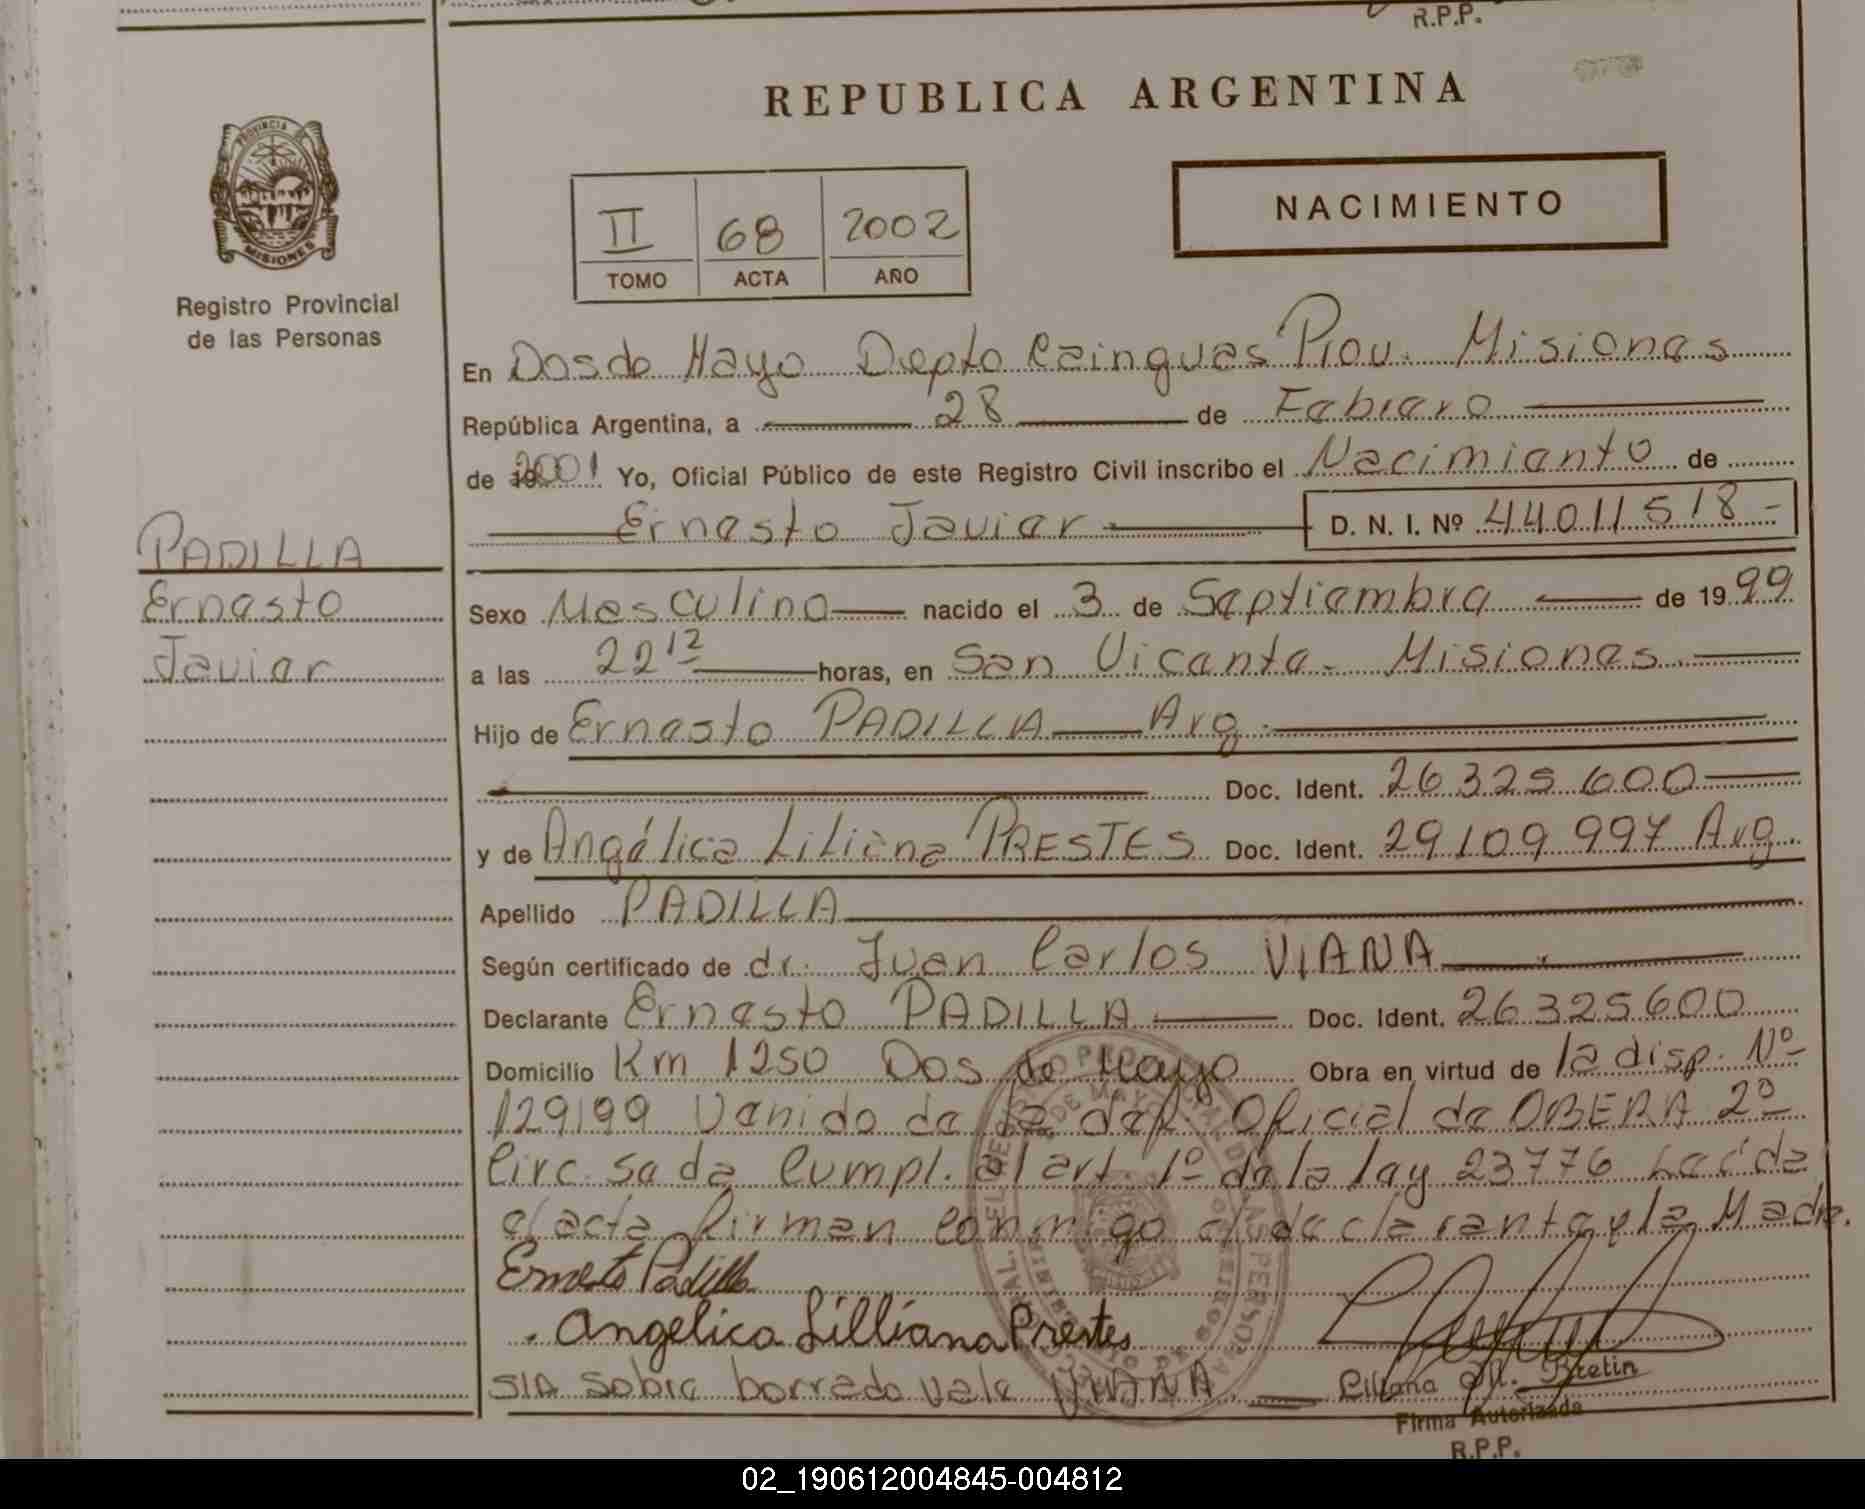 R.P.P.
REPUBLICA ARGENTINA
PROVINCIA DE
MISIONES
Registro Provincial
de las Personas
NACIMIENTO
II 68 2002
TOMO ACTA AÑO
En Dos de Mayo Depto Cainguas Prov. Misiones
República Argentina, a 28 de Febrero
de 2001 Yo, Oficial Público de este Registro Civil inscribo el Nacimiento de
Ernesto Javier D. N. I. Nº 44011518-
PADILLA
Ernesto
Javier
Sexo Masculino nacido el 3 de Septiembre de 1999
a las 22 12 horas, en San Vicente - Misiones
Hijo de Ernesto PADILLA Arg.
Doc. Ident. 26325600
y de Angélica Liliana PRESTES Doc. Ident. 29109997 Arg.
Apellido PADILLA
Según certificado de dr. Juan Carlos VIANA
Declarante Ernesto PADILLA Doc. Ident. 26325600
Domicilio Km 1250 Dos de Mayo Obra en virtud de la disp. Nº
129/99 Venido de la def. Oficial de OBERA 2º
Circ. se da cumpl. al art. 1º de la ley 23776 Leída
el acta firman conmigo el declarante y la Madre.
Ernesto Padilla
Angelica Lilliana Prestes
S/A sobre borrado vale VIANA
Liliana M. Bretin
Firma Autorizada
R.P.P.
02_190612004845-004812